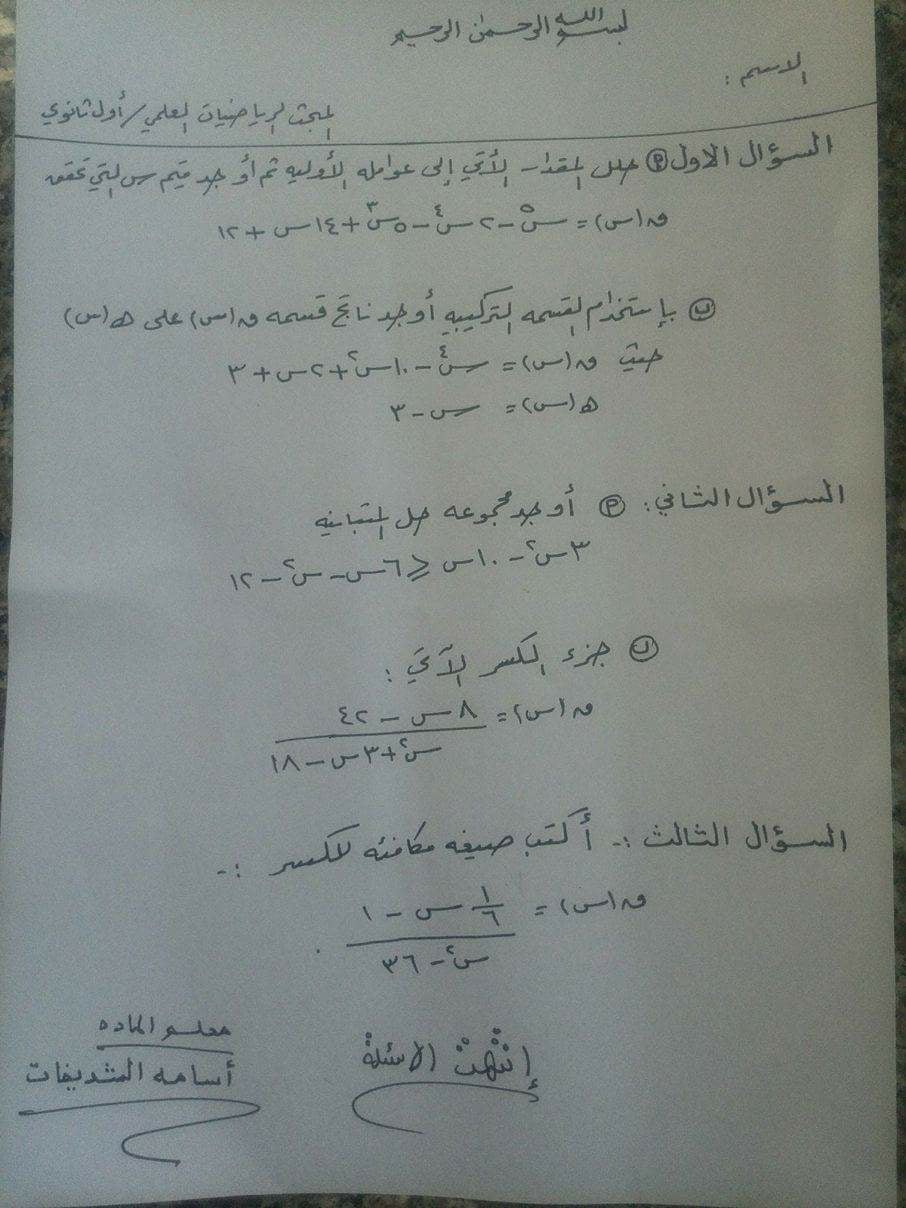 بسم الله الرحمن الرحيم
الاسم :
المبحث الرياضيات العلمي / أول ثانوي
السؤال الاول (P) حلل المقدار الأتي إلى عوامله الأوليه ثم أوجد قيم س التي تحقق
ق(س) = س^٥ - ٢س^٤ - ٥س^٣ + ١٤س + ١٢
(ب) بإستخدام القسمه التركيبيه أوجد ناتج قسمه ق(س) على ه(س)
حيث ق(س) = س^٤ - ١٠س^٢ + ٢س + ٣
ه(س) = س - ٣
السؤال الثاني : (P) أوجد مجموعه حل المتباينه
٣س^٢ - ١٠س ≥ ٦س - س^٢ - ١٢
(ب) جزء الكسر الآتي :
ق(س) = ٨س - ٤٢
س^٢ + ٣س - ١٨
السؤال الثالث :- أكتب صيغه مكافئه للكسر :-
ق(س) = ١/٦ س - ١
س^٢ - ٣٦
إنتهت الاسئلة
معلم الماده
أسامه الشديفات